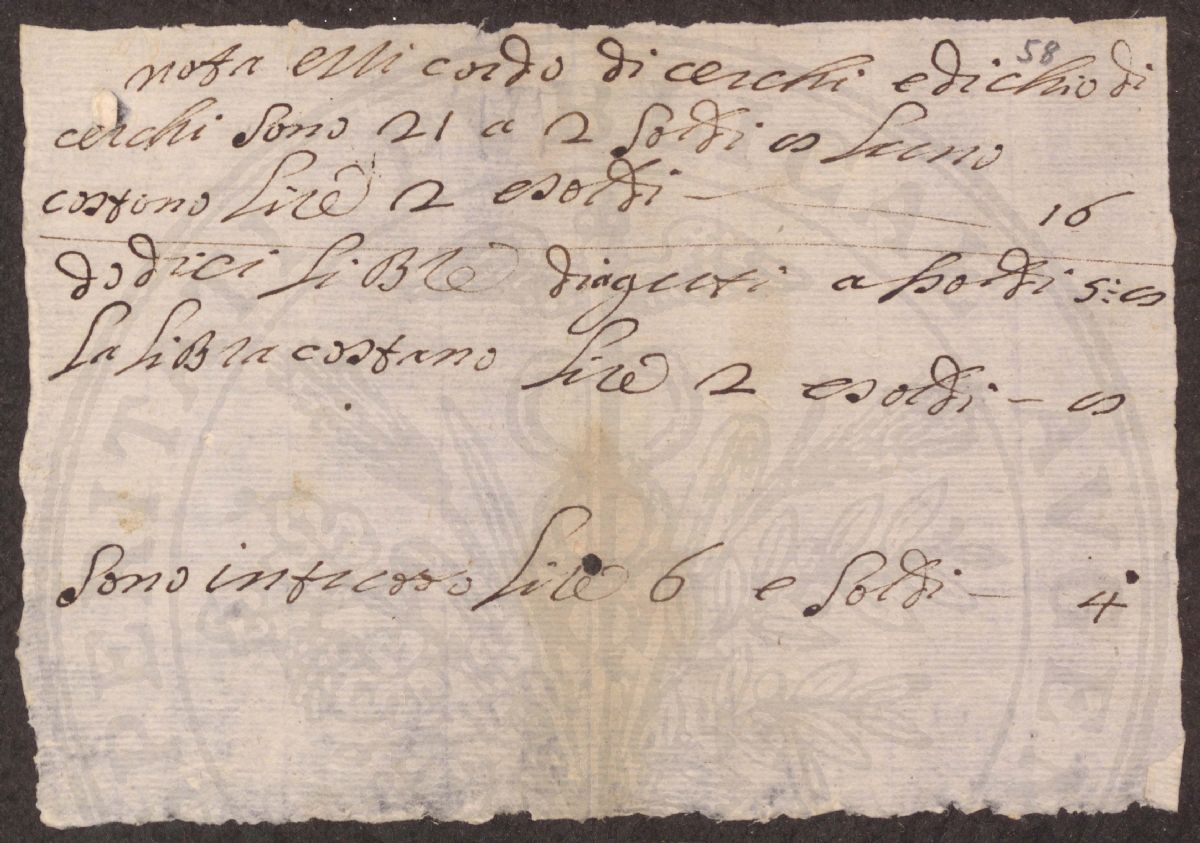 58
nota e Ricordo di cerchi e di chiodi
cerchi sono 21 a 2 soldi e 8 luno
costono lire 2 e soldi — 16
dodici libre di aguti a soldi 5: e 8
la libra costano lire 2 e soldi — 8
sono in tutto lire 6 e soldi — 4